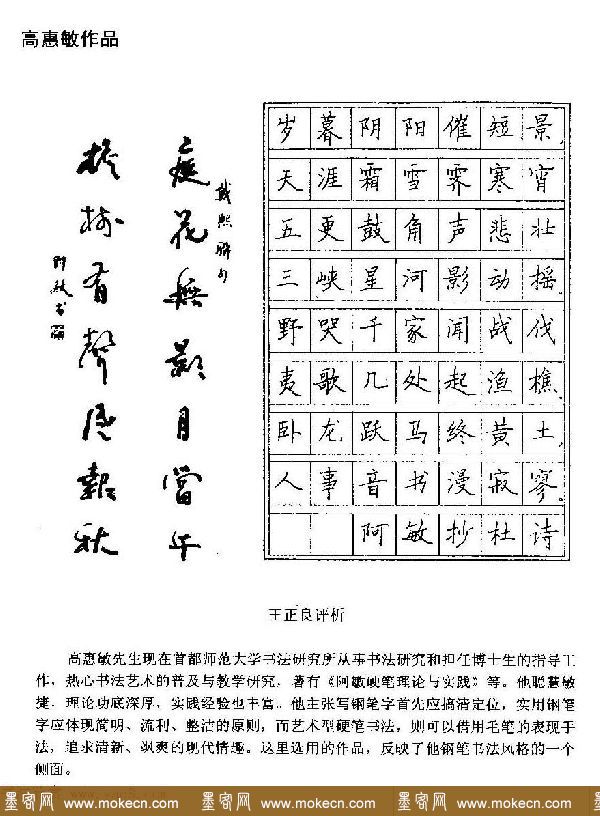 高惠敏作品
戴熙聯句
庭花無影月當午
檐樹有聲風報秋
阿敏書
岁暮阴阳催短景,
天涯霜雪霁寒宵
五更鼓角声悲壮,
三峡星河影动摇。
野哭千家闻战伐
夷歌几处起渔樵。
卧龙跃马终黄土,
人事音书漫寂寥。
阿敏抄杜诗
王正良评析
高惠敏先生现在首都师范大学书法研究所从事书法研究和担任博士生的指导工
作，热心书法艺术的普及与教学研究，著有《阿敏硬笔理论与实践》等。他聪慧敏
捷，理论功底深厚，实践经验也丰富。他主张写钢笔字首先应搞清定位，实用钢笔
字应体现简明、流利、整洁的原则，而艺术型硬笔书法，则可以借用毛笔的表现手
法，追求清新、飒爽的现代情趣。这里选用的作品，反映了他钢笔书法风格的一个
侧面。
墨客网 www.mokecn.com 墨客网 www.mokecn.com 墨客网 www.mokecn.com